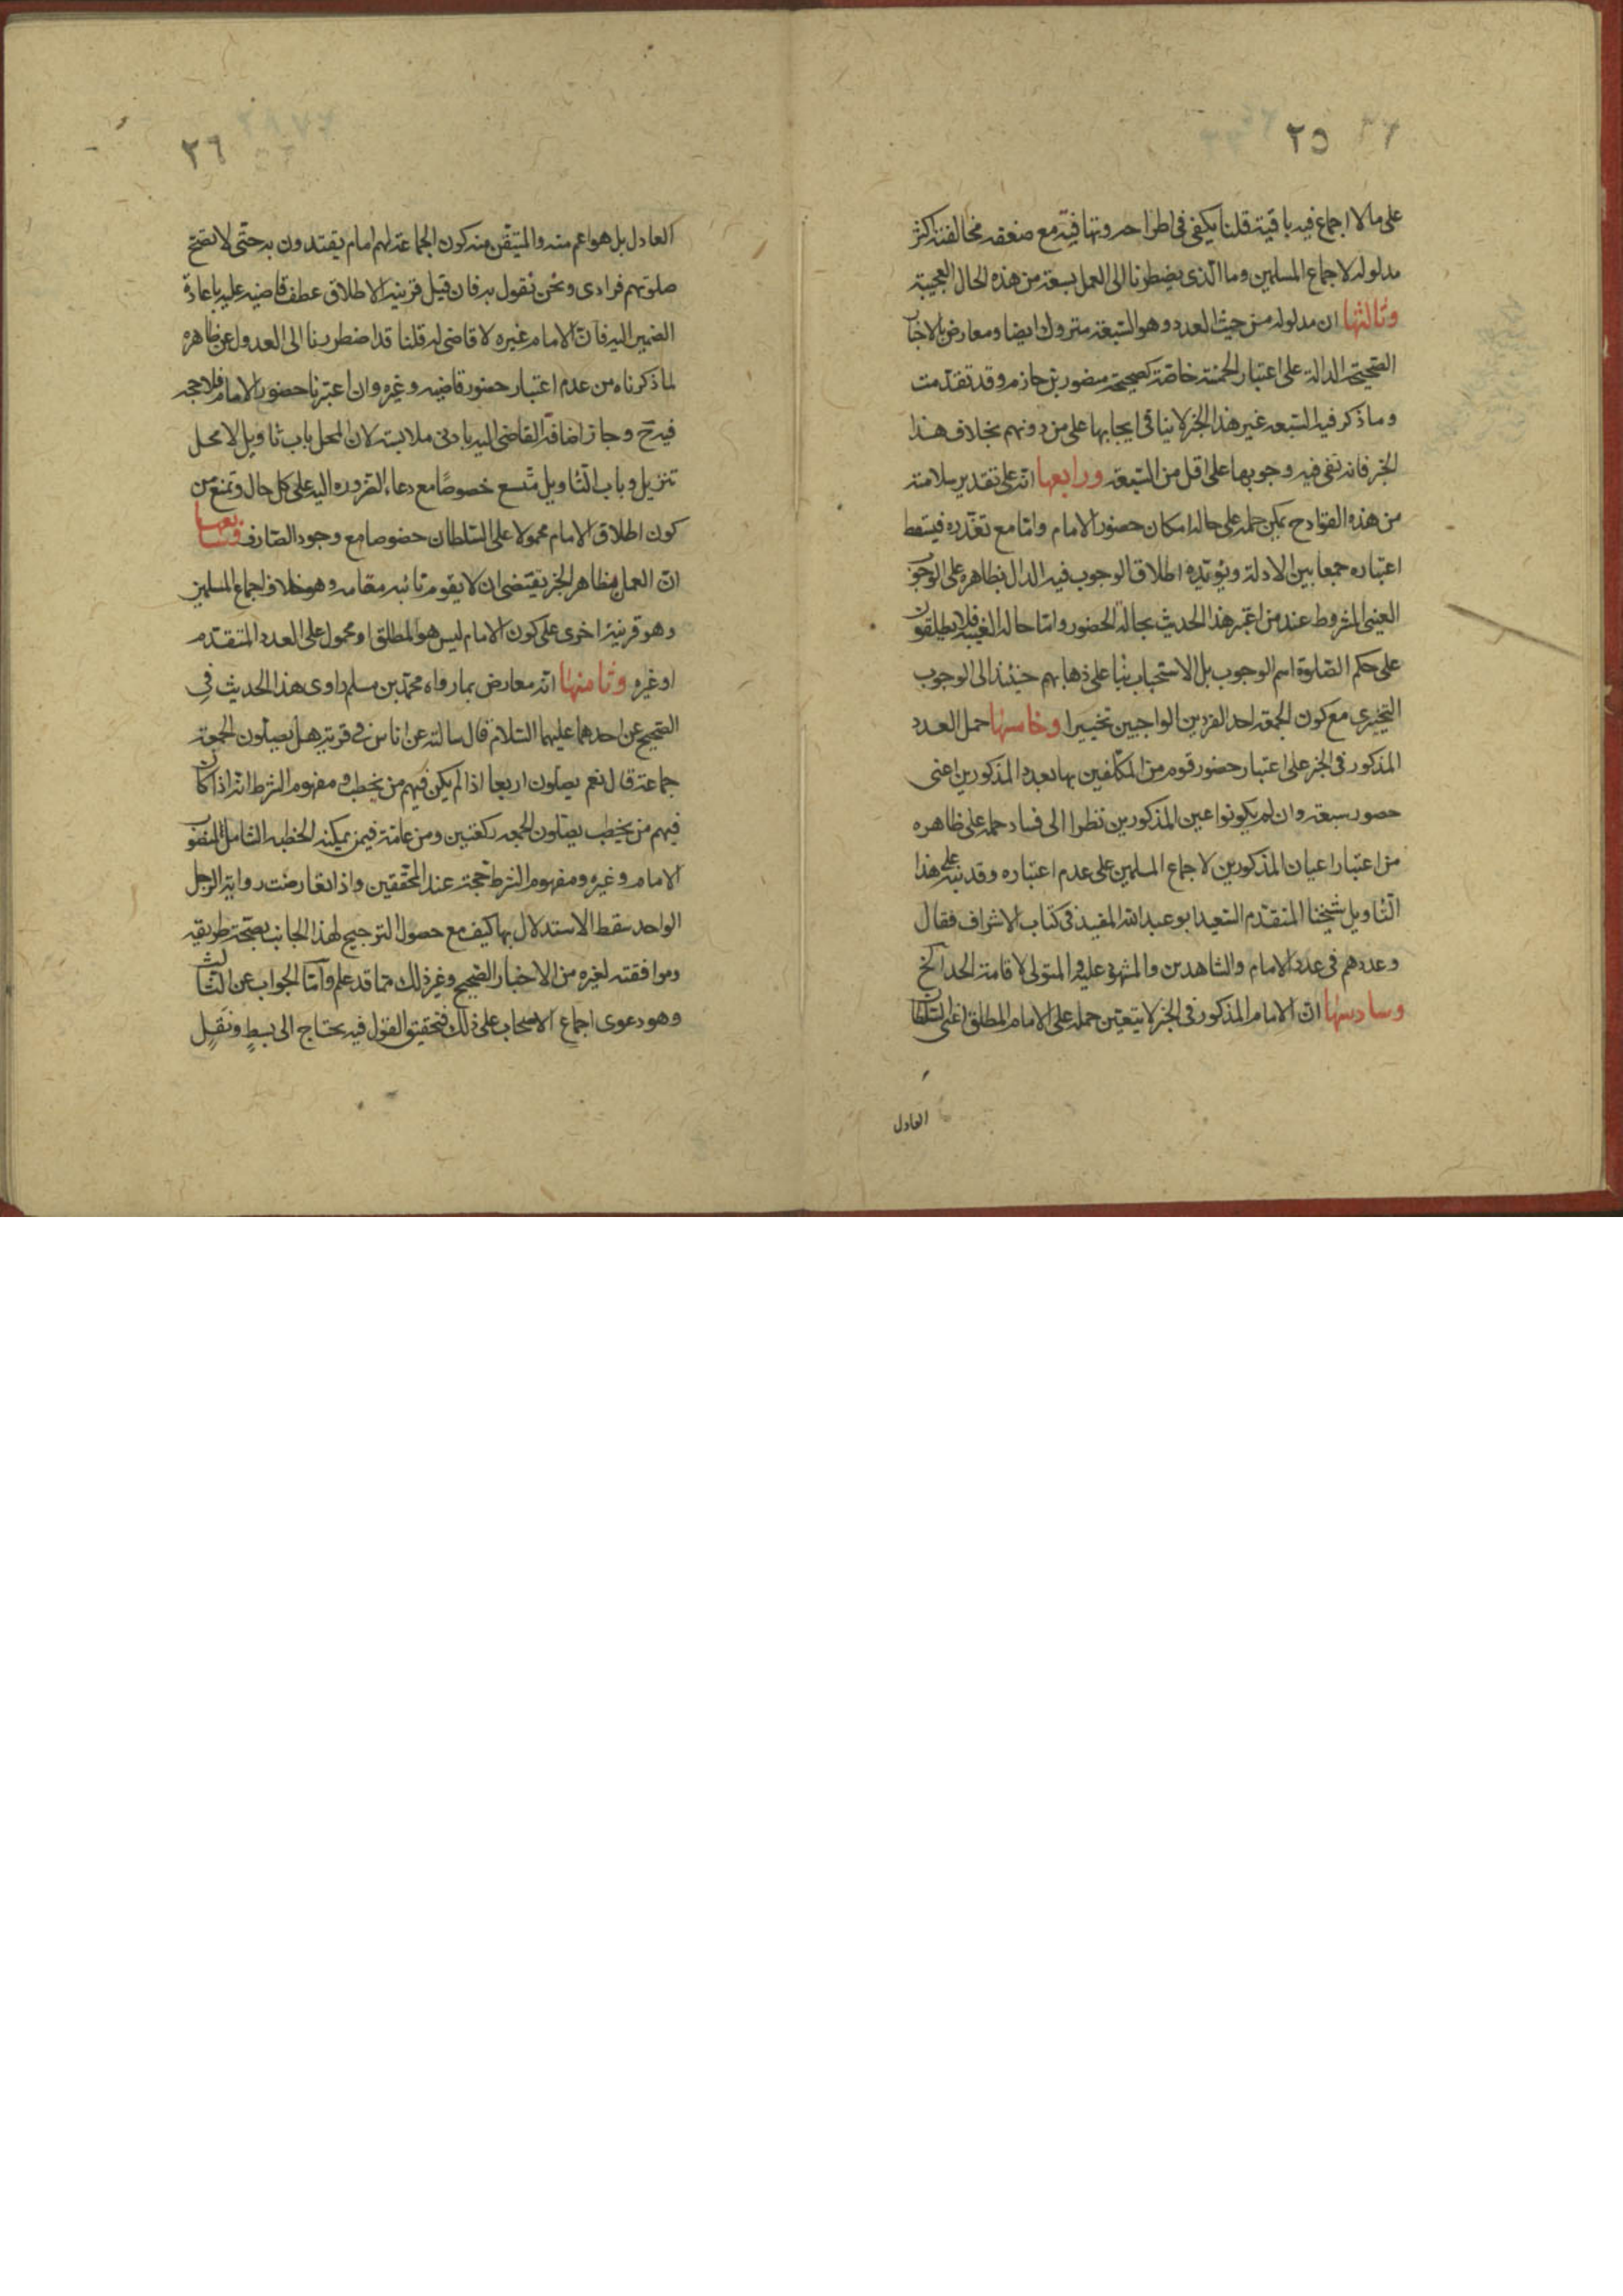 ٢٥
على ما لا اجماع فيه باقية قلنا يكفى فى اطراحه وتهافته مع ضعفه مخالفته اكثر
مدلوله لاجماع المسلمين وما الذى يضطرنا الى العمل بسبعة من هذه الحال العجيبة
وثالثها ان مدلوله من حيث العدد وهو السبعة متروك ايضا ومعارض بالاخبار
الصحيحة الدالة على اعتبار الخمسة خاصة كصحيحة منصور بن حازم وقد تقدمت
وما ذكر فيه السبعة غير هذا الخبر لا ينافى ايجابها على من دونهم بخلاف هذا
الخبر فانه نفى فيه وجوبها على اقل من السبعة ورابعها انه على تقدير سلامته
من هذه القوادح يمكن حمله على حالة امكان حضور الامام واما مع تعذره فيسقط
اعتباره جمعا بين الادلة ويؤيده اطلاق الوجوب فيه الدال بظاهره على الوجوب
العينى المشروط عند من اعتبر هذا الحديث بحالة الحضور واما حالة الغيبة فلا يطلقون
على حكم الصلوة اسم الوجوب بل الاستحباب بناء على ذهابهم حينئذ الى الوجوب
التخييرى مع كون الجمعة احد الفردين الواجبين تخييرا وخامسها حمل العدد
المذكور فى الخبر على اعتبار حضور قوم من المكلفين بها بعدد المذكورين اعنى
حضور سبعة وان لم يكونوا عين المذكورين نظرا الى فساد حمله على ظاهره
من اعتبار اعيان المذكورين لاجماع المسلمين على عدم اعتباره وقد نبه على هذا
التأويل شيخنا المتقدم السعيد ابو عبد الله المفيد فى كتاب الاشراف فقال
وعددهم فى عدد الامام والشاهدين والمشهود عليه والمتولى لاقامة الحد الخ
وسادسها ان الامام المذكور فى الخبر لا يتعين حمله على الامام المطلق اعنى السلطان
العادل
٢٦
العادل بل هو اعم منه والمتيقن منه كون الجماعة لهم امام يقتدون به حتى لا تصح
صلوتهم فرادى ونحن نقول به فان قيل قرينة الاطلاق عطف قاضيه عليه باعادة
الضمير اليه فان الامام غيره لا قاضى له قلنا قد اضطررنا الى العدول عن ظاهره
لما ذكرناه من عدم اعتبار حضور قاضيه وغيره وان اعتبرنا حضور الامام فلا حجة
فيه ح وجاز اضافة القاضى اليه بادنى ملابسة لان المحل باب تاويل لا محل
تنزيل وباب التأويل متسع خصوصًا مع دعاء الضرورة اليه على كل حال ونمنع من
كون اطلاق الامام محمولا على السلطان خصوصا مع وجود الصارف وسابعها
ان العمل بظاهر الخبر يقتضى ان لا يقوم نائبه مقامه وهو خلاف اجماع المسلمين
وهو قرينة اخرى على كون الامام ليس هو المطلق او محمول على العدد المتقدم
او غيره وثامنها انه معارض بما رواه محمد بن مسلم راوى هذا الحديث فى
الصحيح عن احدهما عليهما السلام قال سالته عن اناس فى قرية هل يصلون الجمعة
جماعة قال نعم يصلون اربعا اذا لم يكن فيهم من يخطب ومفهوم الشرط انه اذا كان
فيهم من يخطب يصلون الجمعة ركعتين ومن عامة فيمن يمكنه الخطبة الشامل لمنصوب
الامام وغيره ومفهوم الشرط حجة عند المحققين واذا تعارضت رواية الرجل
الواحد سقط الاستدلال بها كيف مع حصول الترجيح لهذا الجانب بصحة طريقه
وموافقته لغيره من الاخبار الصحيح وغير ذلك مما قد علم وامّا الجواب عن الثالث
وهو دعوى اجماع الاصحاب على ذلك فتحقيق القول فيه يحتاج الى بسطٍ ونقلٍ